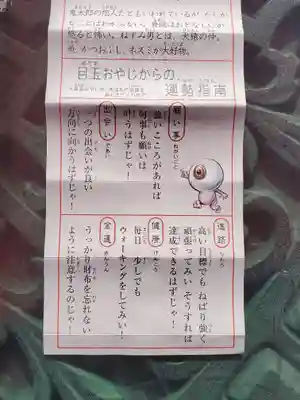 悪ると怖い。ねずみ男とは、犬猿の仲。
かつおぶし、ネズミが大好物。
目玉おやじからの、
運勢指南
願い事
ねがいごと
強いこころがあれば
何事も願いは
叶うはずじゃ！
出会い
であい
一つの出会いが良い
方向に向かうはずじゃ！
進路
しんろ
高い目標でも ねばり強く
頑張ってみい そうすれば
達成できるはずじゃ！
健康
けんこう
毎日 少しでも
ウォーキングをしてみい！
金運
きんうん
うっかり財布を忘れない
ように注意するのじゃ！